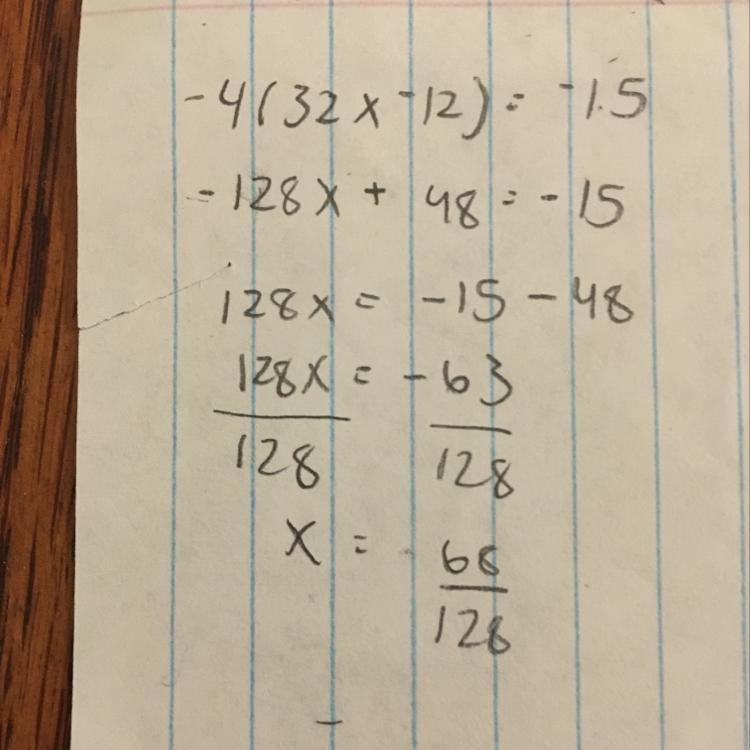 -4(32x -12) = -1.5
-128x + 48 = -15
128x = -15 - 48
128x = -63
128 128
x = 68
128